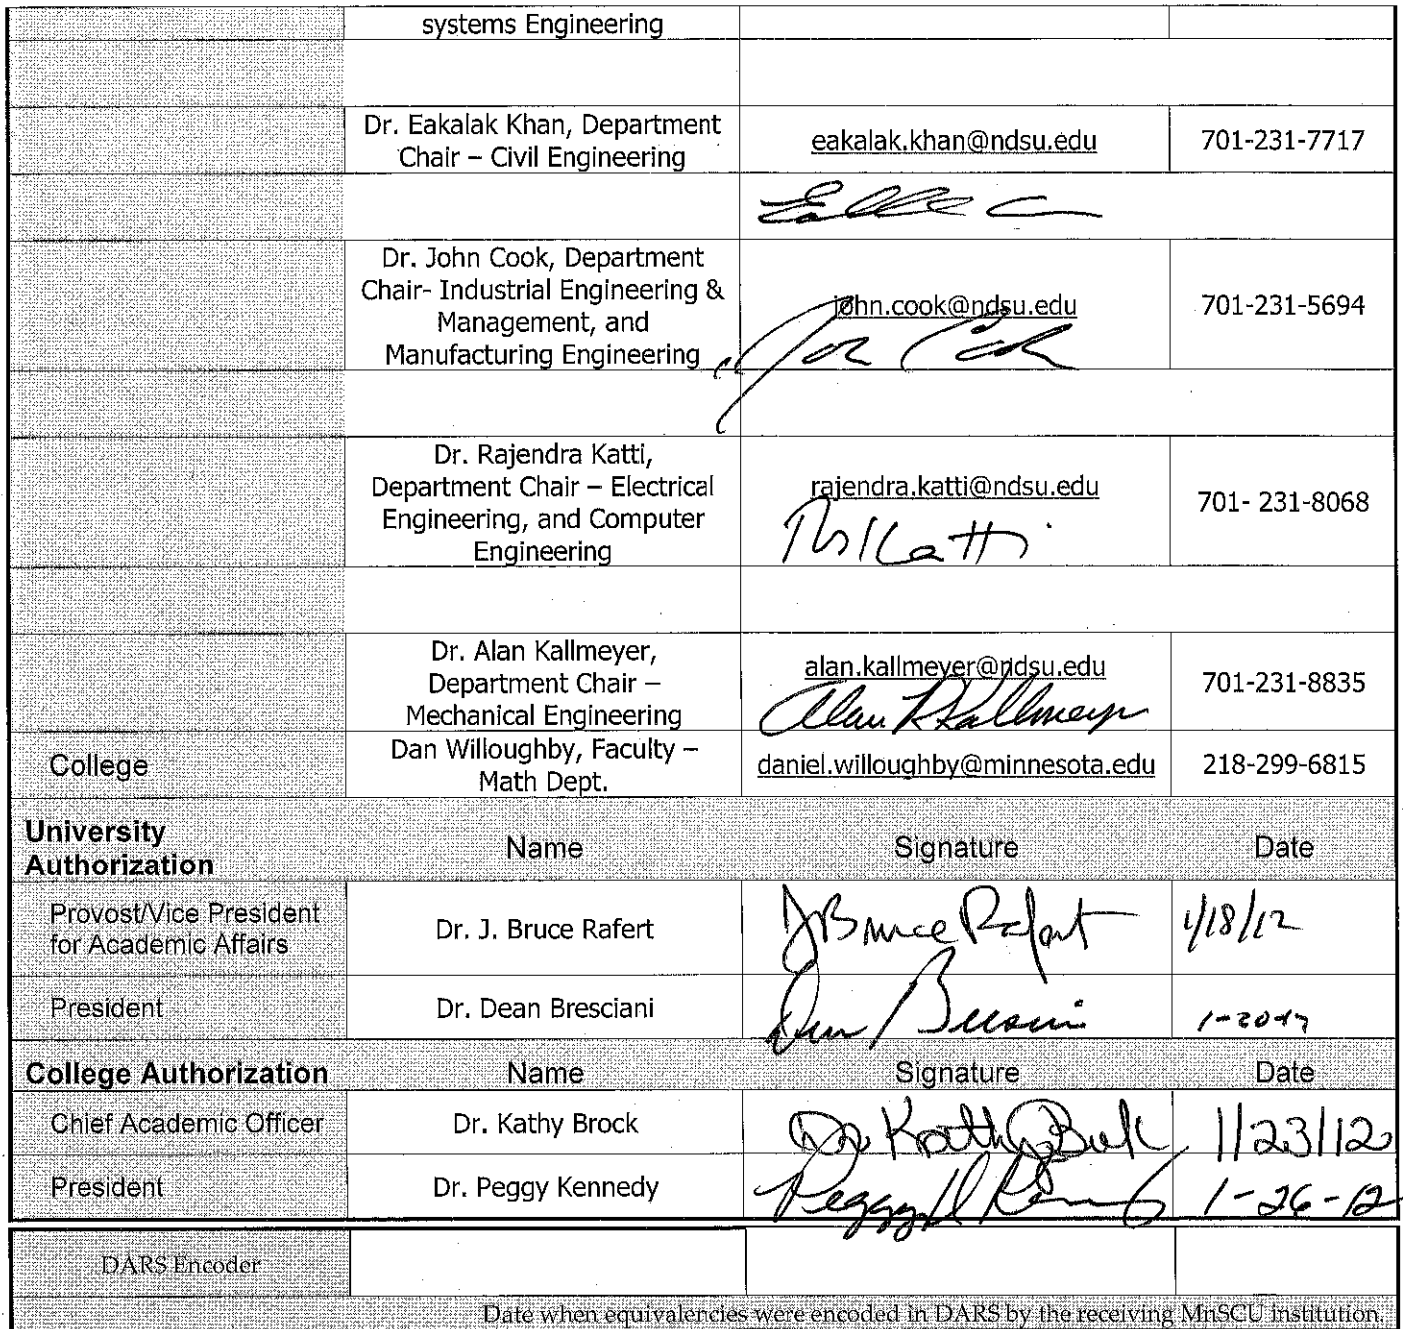 systems Engineering
Dr. Eakalak Khan, Department
Chair – Civil Engineering
eakalak.khan@ndsu.edu
701-231-7717
Dr. John Cook, Department
Chair- Industrial Engineering &
Management, and
Manufacturing Engineering
john.cook@ndsu.edu
701-231-5694
Dr. Rajendra Katti,
Department Chair – Electrical
Engineering, and Computer
Engineering
rajendra.katti@ndsu.edu
Katti
701- 231-8068
Dr. Alan Kallmeyer,
Department Chair –
Mechanical Engineering
alan.kallmeyer@ndsu.edu
Alan R Kallmeyer
701-231-8835
College
Dan Willoughby, Faculty –
Math Dept.
daniel.willoughby@minnesota.edu
218-299-6815
University
Authorization
Name
Signature
Date
Provost/Vice President
for Academic Affairs
Dr. J. Bruce Rafert
J Bruce Rafert
1/18/12
President
Dr. Dean Bresciani
College Authorization
Name
Signature
Date
Chief Academic Officer
Dr. Kathy Brock
Dr. Kathy Brock
1/23/12
President
Dr. Peggy Kennedy
Peggy D Kennedy
1-26-12
DARS Encoder
Date when equivalencies were encoded in DARS by the receiving MnSCU institution.